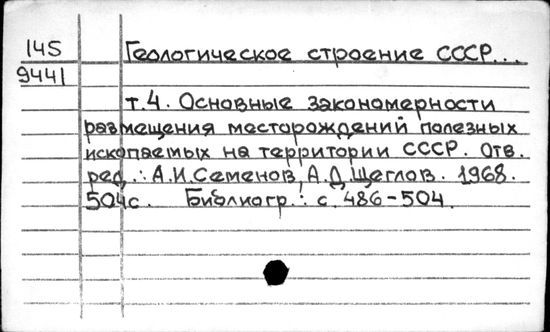 145 Геологическое строение СССР...
9441
т.4. Основные закономерности
размещения месторождений полезных
ископаемых на территории СССР. Отв.
ред.: А.И.Семенов, А.Д.Щеглов. 1968.
504с. Библиогр.: с. 486-504.